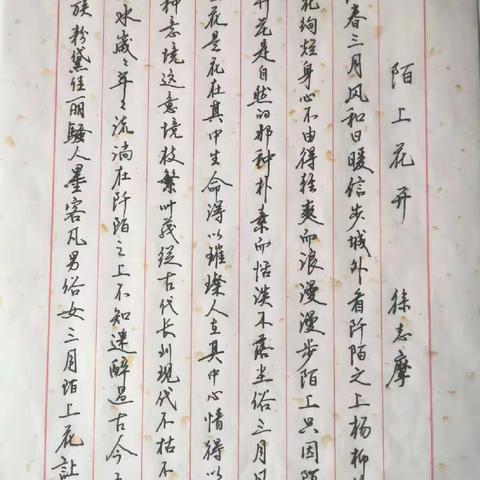 陌上花开 徐志摩
春三月风和日暖信步城外看阡陌之上杨柳
花绚烂身心不由得轻爽而浪漫漫步陌上只因陌
开花是自然的那种朴素而恬淡不落尘俗三月风
花是花在其中生命得以璀璨人在其中心情得以
种意境这意境枝繁叶茂从古代长到现代不枯不
水岁々年々流淌在阡陌之上不知迷醉过古今
族粉黛佳丽骚人墨客凡男俗女三月陌上花让